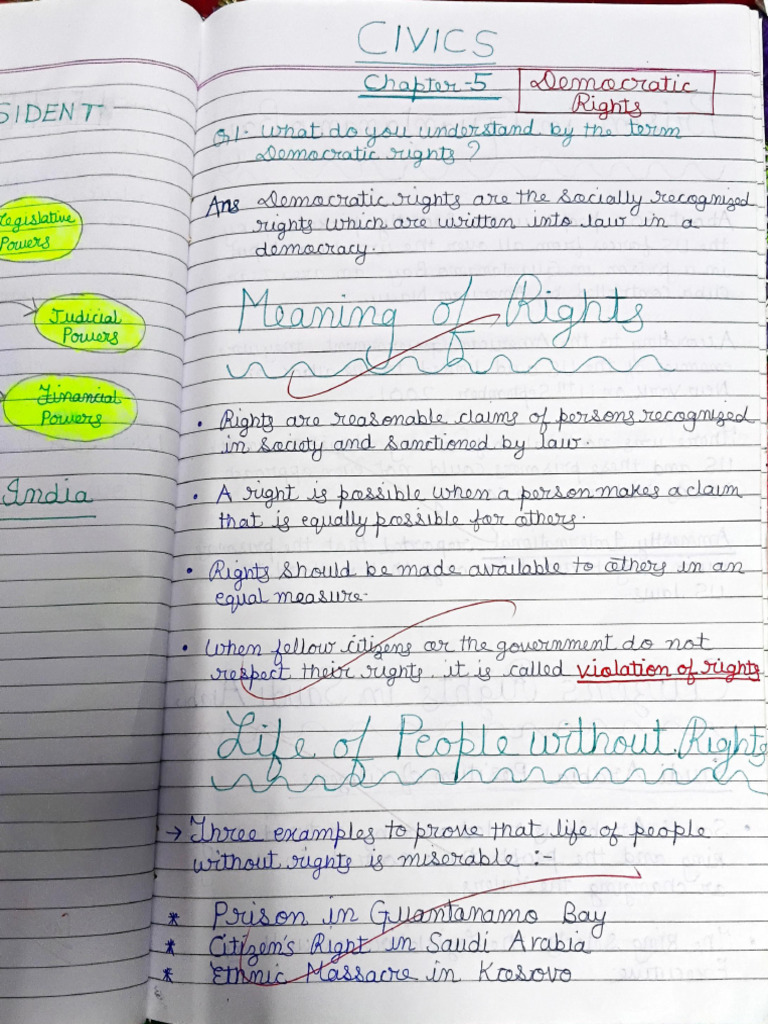 SIDENT
Legislative
Powers
Judicial
Powers
Financial
Powers
India
CIVICS
Chapter-5 Democratic
Rights
Q1. What do you understand by the term
Democratic rights?
Ans Democratic rights are the socially recognized
rights which are written into law in a
democracy.
Meaning of Rights
• Rights are reasonable claims of persons recognized
in society and sanctioned by law.
• A right is possible when a person makes a claim
that is equally possible for others.
• Rights should be made available to others in an
equal measure.
• When fellow citizens or the government do not
respect their rights, it is called violation of rights
Life of People without Rights
→ Three examples to prove that life of people
without rights is miserable :-
* Prison in Guantanamo Bay
* Citizen's Right in Saudi Arabia
* Ethnic Massacre in Kosovo